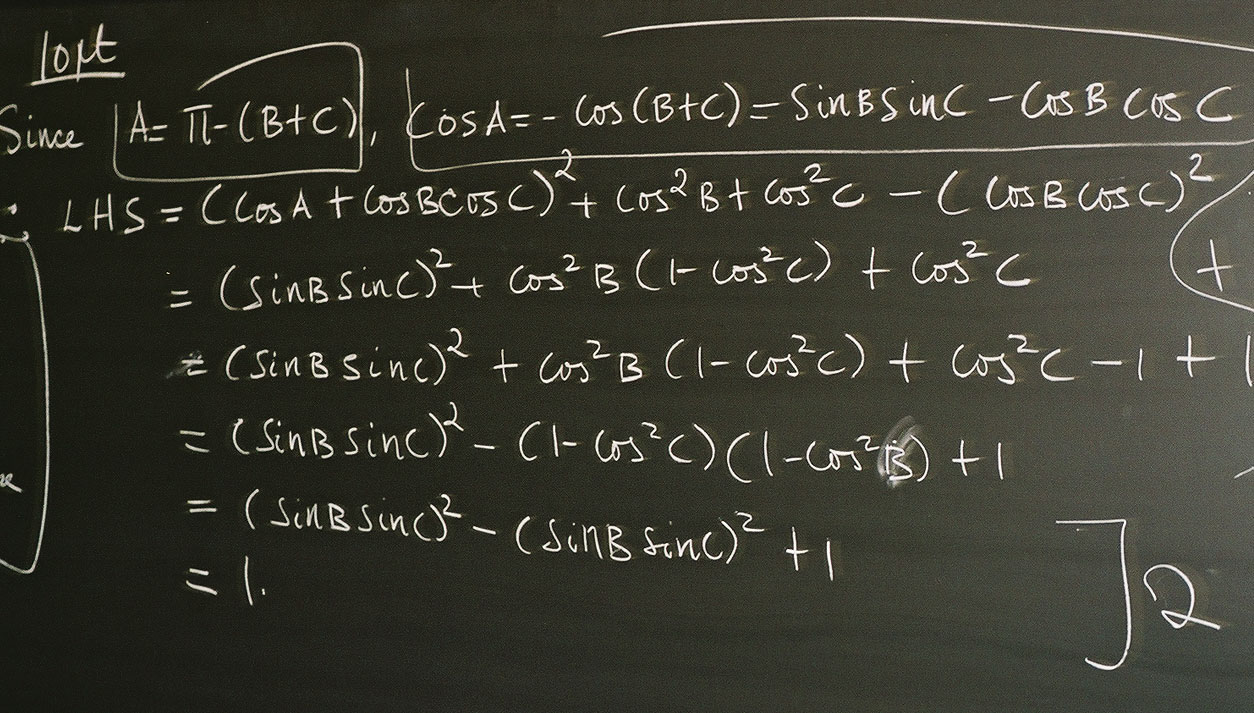 10pt
Since A = π - (B+C), Cos A = - Cos (B+C) = Sin B Sin C - Cos B Cos C
∴ LHS = (Cos A + Cos B Cos C)² + Cos² B + Cos² C - (Cos B Cos C)²
= (Sin B Sin C)² + Cos² B (1 - Cos² C) + Cos² C +
= (Sin B Sin C)² + Cos² B (1 - Cos² C) + Cos² C - 1 + 1
= (Sin B Sin C)² - (1 - Cos² C) (1 - Cos² B) + 1
= (Sin B Sin C)² - (Sin B Sin C)² + 1
= 1. ] 2